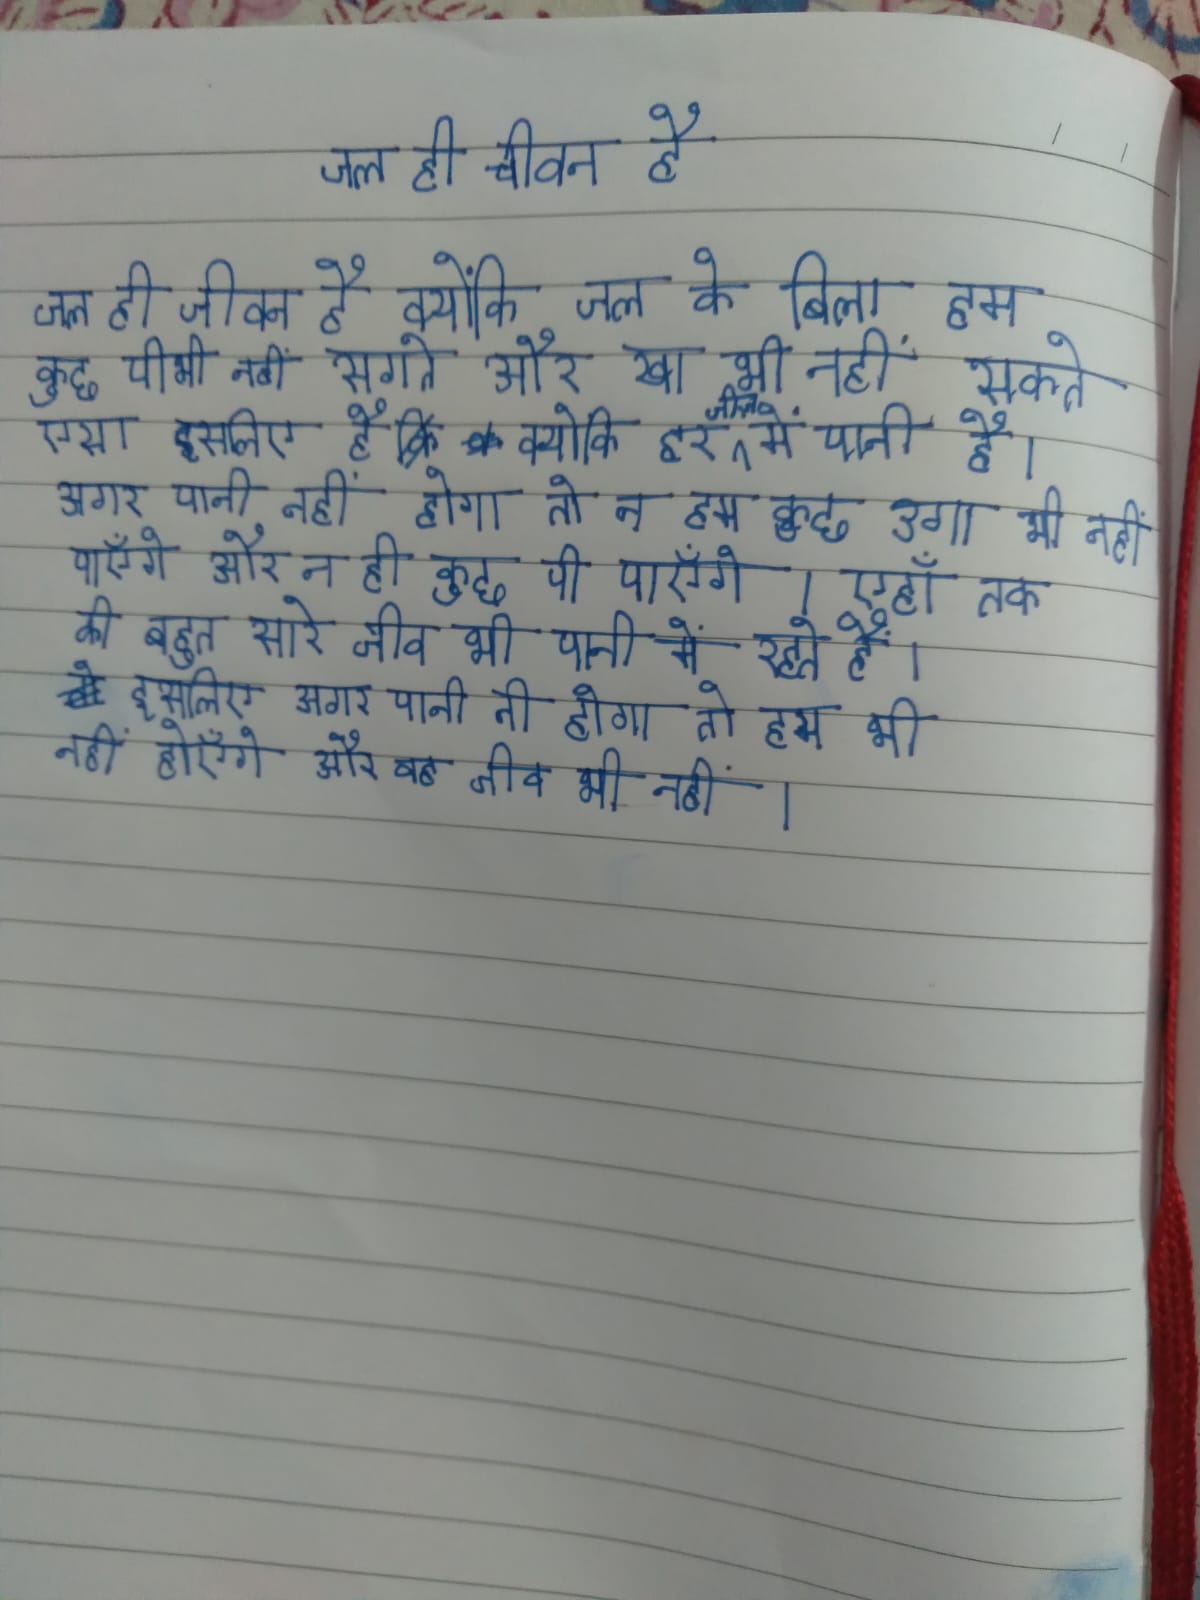 जल ही चीवन है
जल ही जीवन है क्योंकि जल के बिला हम
कुछ पीभी नहीं सगते और खा भी नहीं सकते
एसा इसलिए है कि क्योकि हर में पानी है।
अगर पानी नहीं होगा तो न हम कुछ उगा भी नहीं
पाएँगे और न ही कुछ पी पाएँगे । एहाँ तक
की बहुत सारे जीव भी पानी में रहते हैं।
इसलिए अगर पानी नी होगा तो हम भी
नहीं होएँगे और वह जीव भी नहीं ।